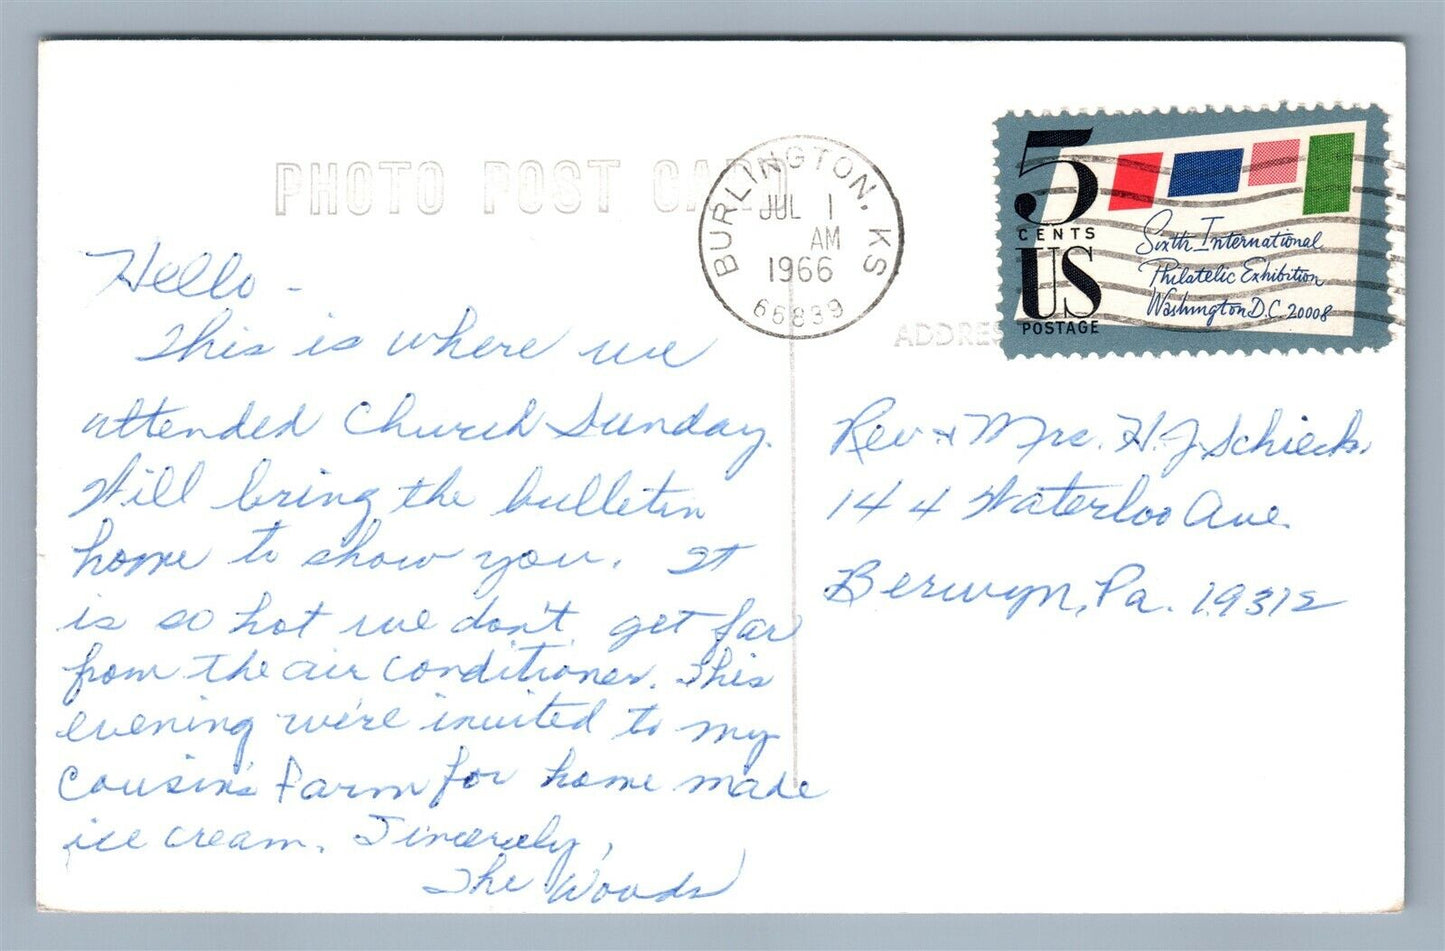 PHOTO POST CARD
BURLINGTON, KS
JUL 1
AM
1966
66839
5
CENTS
US
POSTAGE
Sixth International
Philatelic Exhibition
Washington D.C. 20008
ADDRES
Hello -
This is where we
attended Church Sunday.
Will bring the bulletin
home to show you. It
is so hot we don't get far
from the air conditioner. This
evening we're invited to my
cousin's farm for home made
ice cream. Sincerely,
The Woods
Rev + Mrs. H. J. Schieck.
144 Waterloo Ave.
Berwyn, Pa. 19312